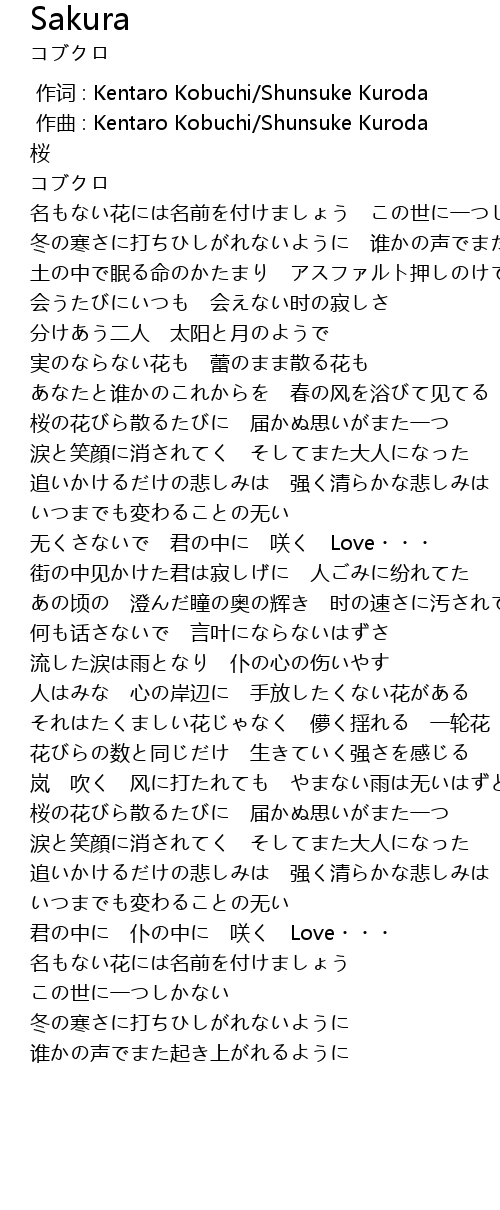 Sakura
コブクロ
作词 : Kentaro Kobuchi/Shunsuke Kuroda
作曲 : Kentaro Kobuchi/Shunsuke Kuroda
桜
コブクロ
名もない花には名前を付けましょう　この世に一つし
冬の寒さに打ちひしがれないように　谁かの声でまた
土の中で眠る命のかたまり　アスファルト押しのけて
会うたびにいつも　会えない时の寂しさ
分けあう二人　太阳と月のようで
実のならない花も　蕾のまま散る花も
あなたと谁かのこれからを　春の风を浴びて见てる
桜の花びら散るたびに　届かぬ思いがまた一つ
涙と笑顔に消されてく　そしてまた大人になった
追いかけるだけの悲しみは　强く清らかな悲しみは
いつまでも変わることの无い
无くさないで　君の中に　咲く　Love・・・
街の中见かけた君は寂しげに　人ごみに纷れてた
あの顷の　澄んだ瞳の奥の辉き　时の速さに汚されて
何も话さないで　言叶にならないはずさ
流した涙は雨となり　仆の心の伤いやす
人はみな　心の岸辺に　手放したくない花がある
それはたくましい花じゃなく　儚く揺れる　一轮花
花びらの数と同じだけ　生きていく强さを感じる
岚　吹く　风に打たれても　やまない雨は无いはずと
桜の花びら散るたびに　届かぬ思いがまた一つ
涙と笑顔に消されてく　そしてまた大人になった
追いかけるだけの悲しみは　强く清らかな悲しみは
いつまでも変わることの无い
君の中に　仆の中に　咲く　Love・・・
名もない花には名前を付けましょう
この世に一つしかない
冬の寒さに打ちひしがれないように
谁かの声でまた起き上がれるように